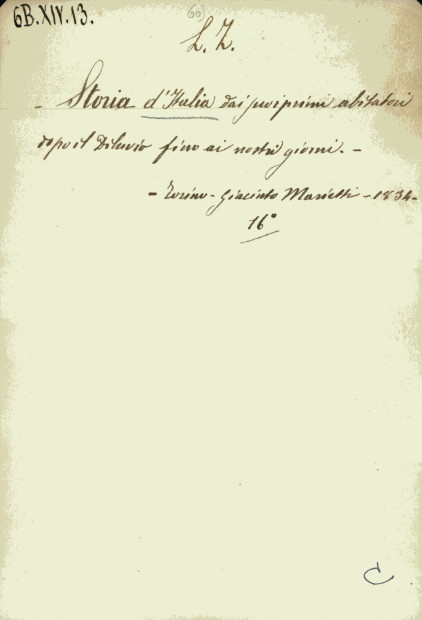 6B.XIV.13.
60
L. Z.
- Storia d'Italia dai suoi primi abitatori
dopo il Diluvio fino ai nostri giorni. -
- Torino - Giacinto Marietti - 1834 -
16°
C